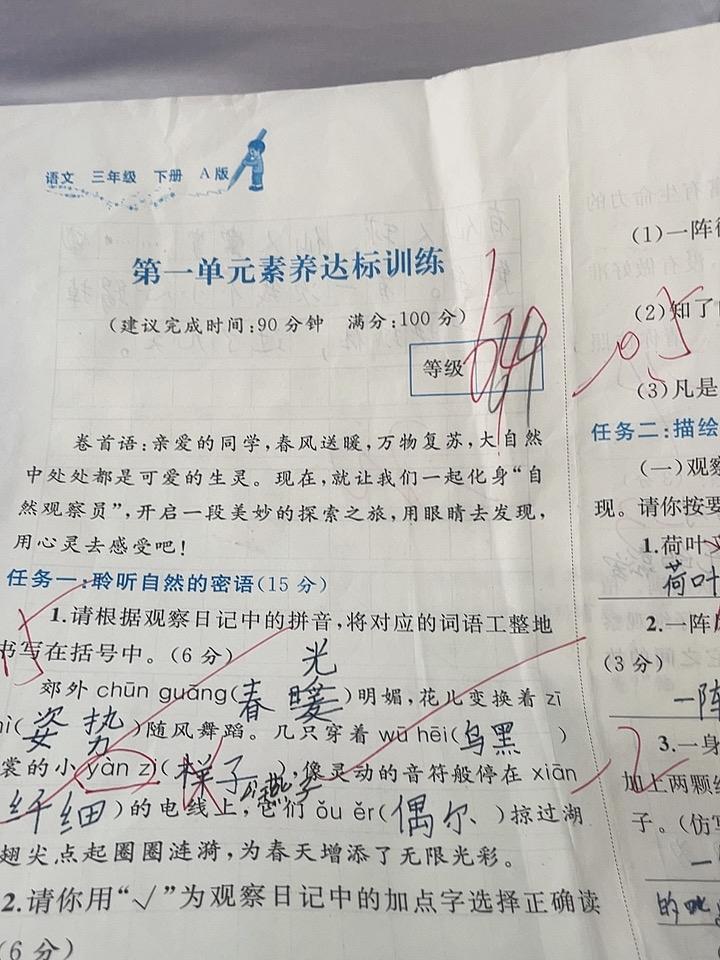 语文 三年级 下册 A版
第一单元素养达标训练
(建议完成时间:90分钟 满分:100分)
等级
卷首语:亲爱的同学,春风送暖,万物复苏,大自然
中处处都是可爱的生灵。现在,就让我们一起化身“自
然观察员”,开启一段美妙的探索之旅,用眼睛去发现,
用心灵去感受吧!
任务一:聆听自然的密语(15分)
1.请根据观察日记中的拼音,将对应的词语工整地
书写在括号中。(6分)
光
郊外 chūn guāng(春暖)明媚,花儿变换着 zī
(姿势)随风舞蹈。几只穿着 wū hēi(乌黑)
裳的小 yàn zi(样子),像灵动的音符般停在 xiān
燕子
纤细)的电线上,它们 ǒu ěr(偶尔)掠过湖
翅尖点起圈圈涟漪,为春天增添了无限光彩。
2.请你用“√”为观察日记中的加点字选择正确读
(6分)
(1)一阵
(2)知了
(3)凡是
任务二:描绘
(一)观察
现。请你按要
1.荷叶
荷叶
2.一阵
(3分)
一阵
3.一身
加上两颗
子。(仿写
一
的